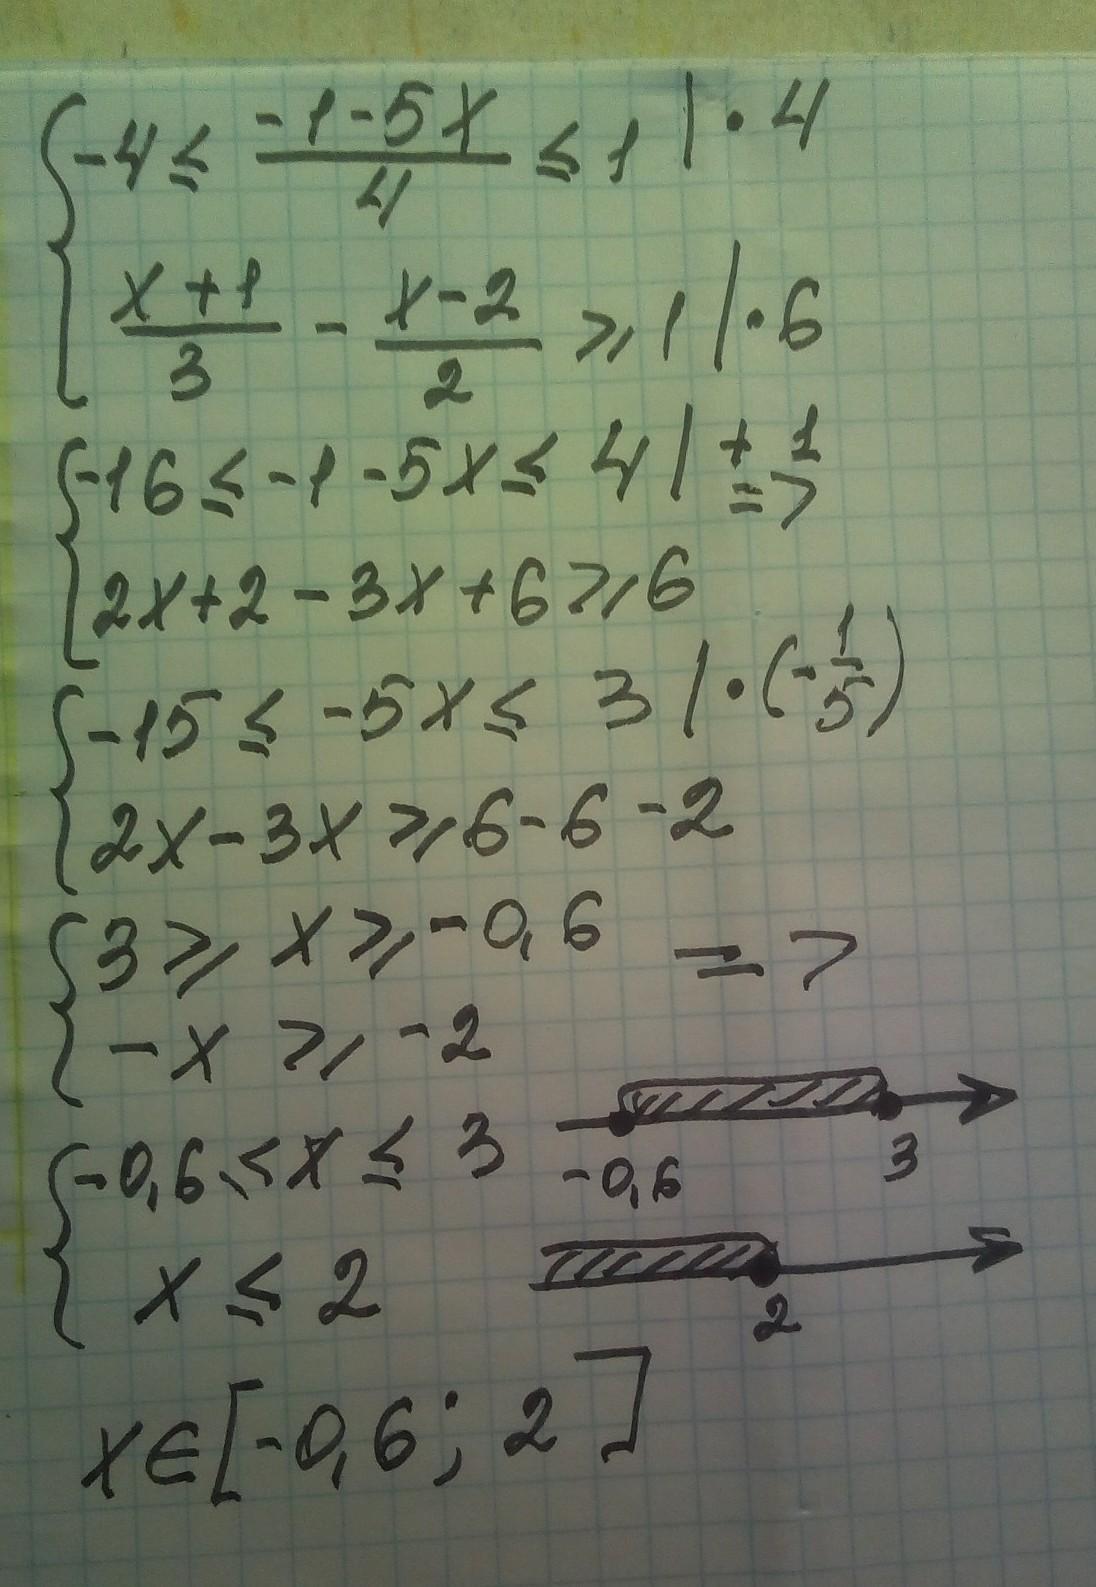 { -4 ≤ (-1-5x)/4 ≤ 1 | · 4
(x+1)/3 - (x-2)/2 ≥ 1 | · 6
{ -16 ≤ -1 -5x ≤ 4 | + 1 =>
2x+2-3x+6 ≥ 6
{ -15 ≤ -5x ≤ 3 | · (-1/5)
2x-3x ≥ 6-6-2
{ 3 ≥ x ≥ -0,6 =>
-x ≥ -2
{ -0,6 ≤ x ≤ 3 -0,6 3
x ≤ 2 2
x∈[-0,6; 2]